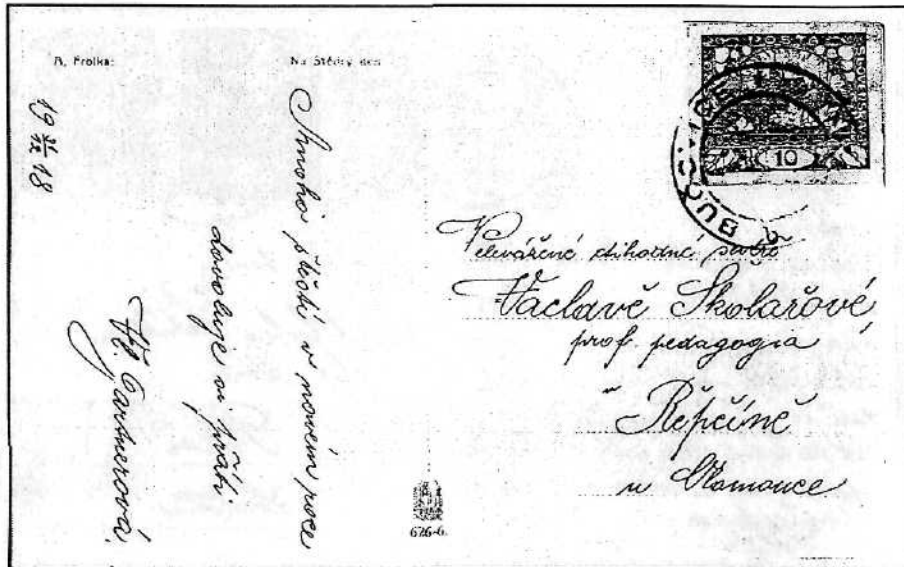 A. Frolka:
Na Štědrý den
19 31/XII 18
Mnoho štěstí v novém roce
dovoluje si přáti
Gartnerová.
10
Velevážené ctihodné sestře
Václavě Školařové,
prof. pedagogia
v Řepčíně
u Olomouce
626-6.